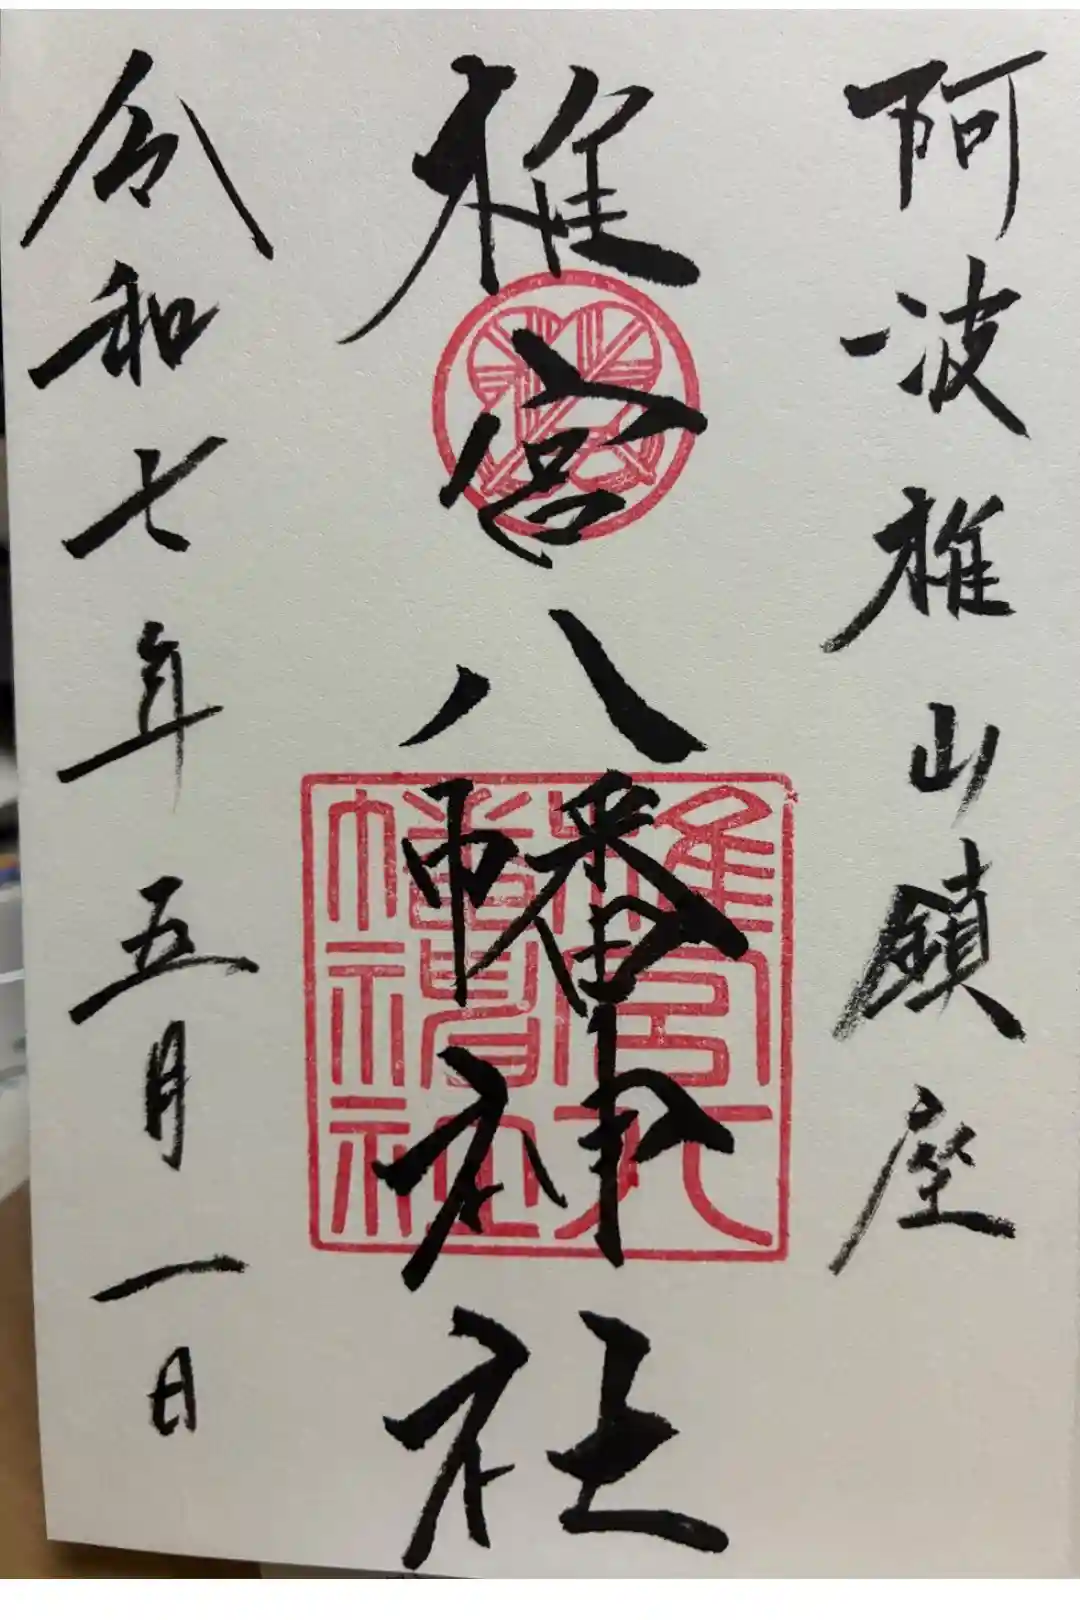 阿波椎山鎮座
椎宮八幡神社
令和七年五月一日
椎宮八
幡神社